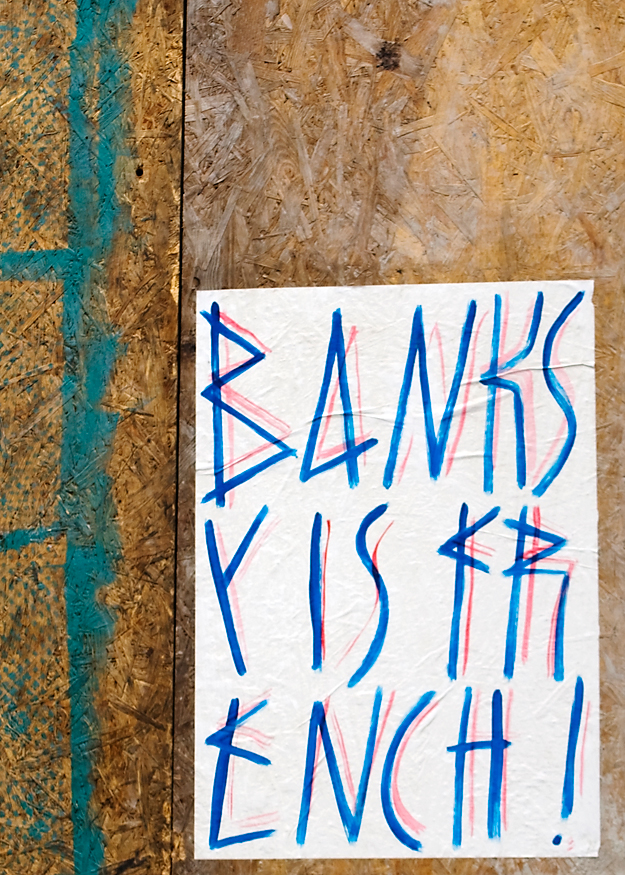 BANKS
Y IS FR
ENCH!